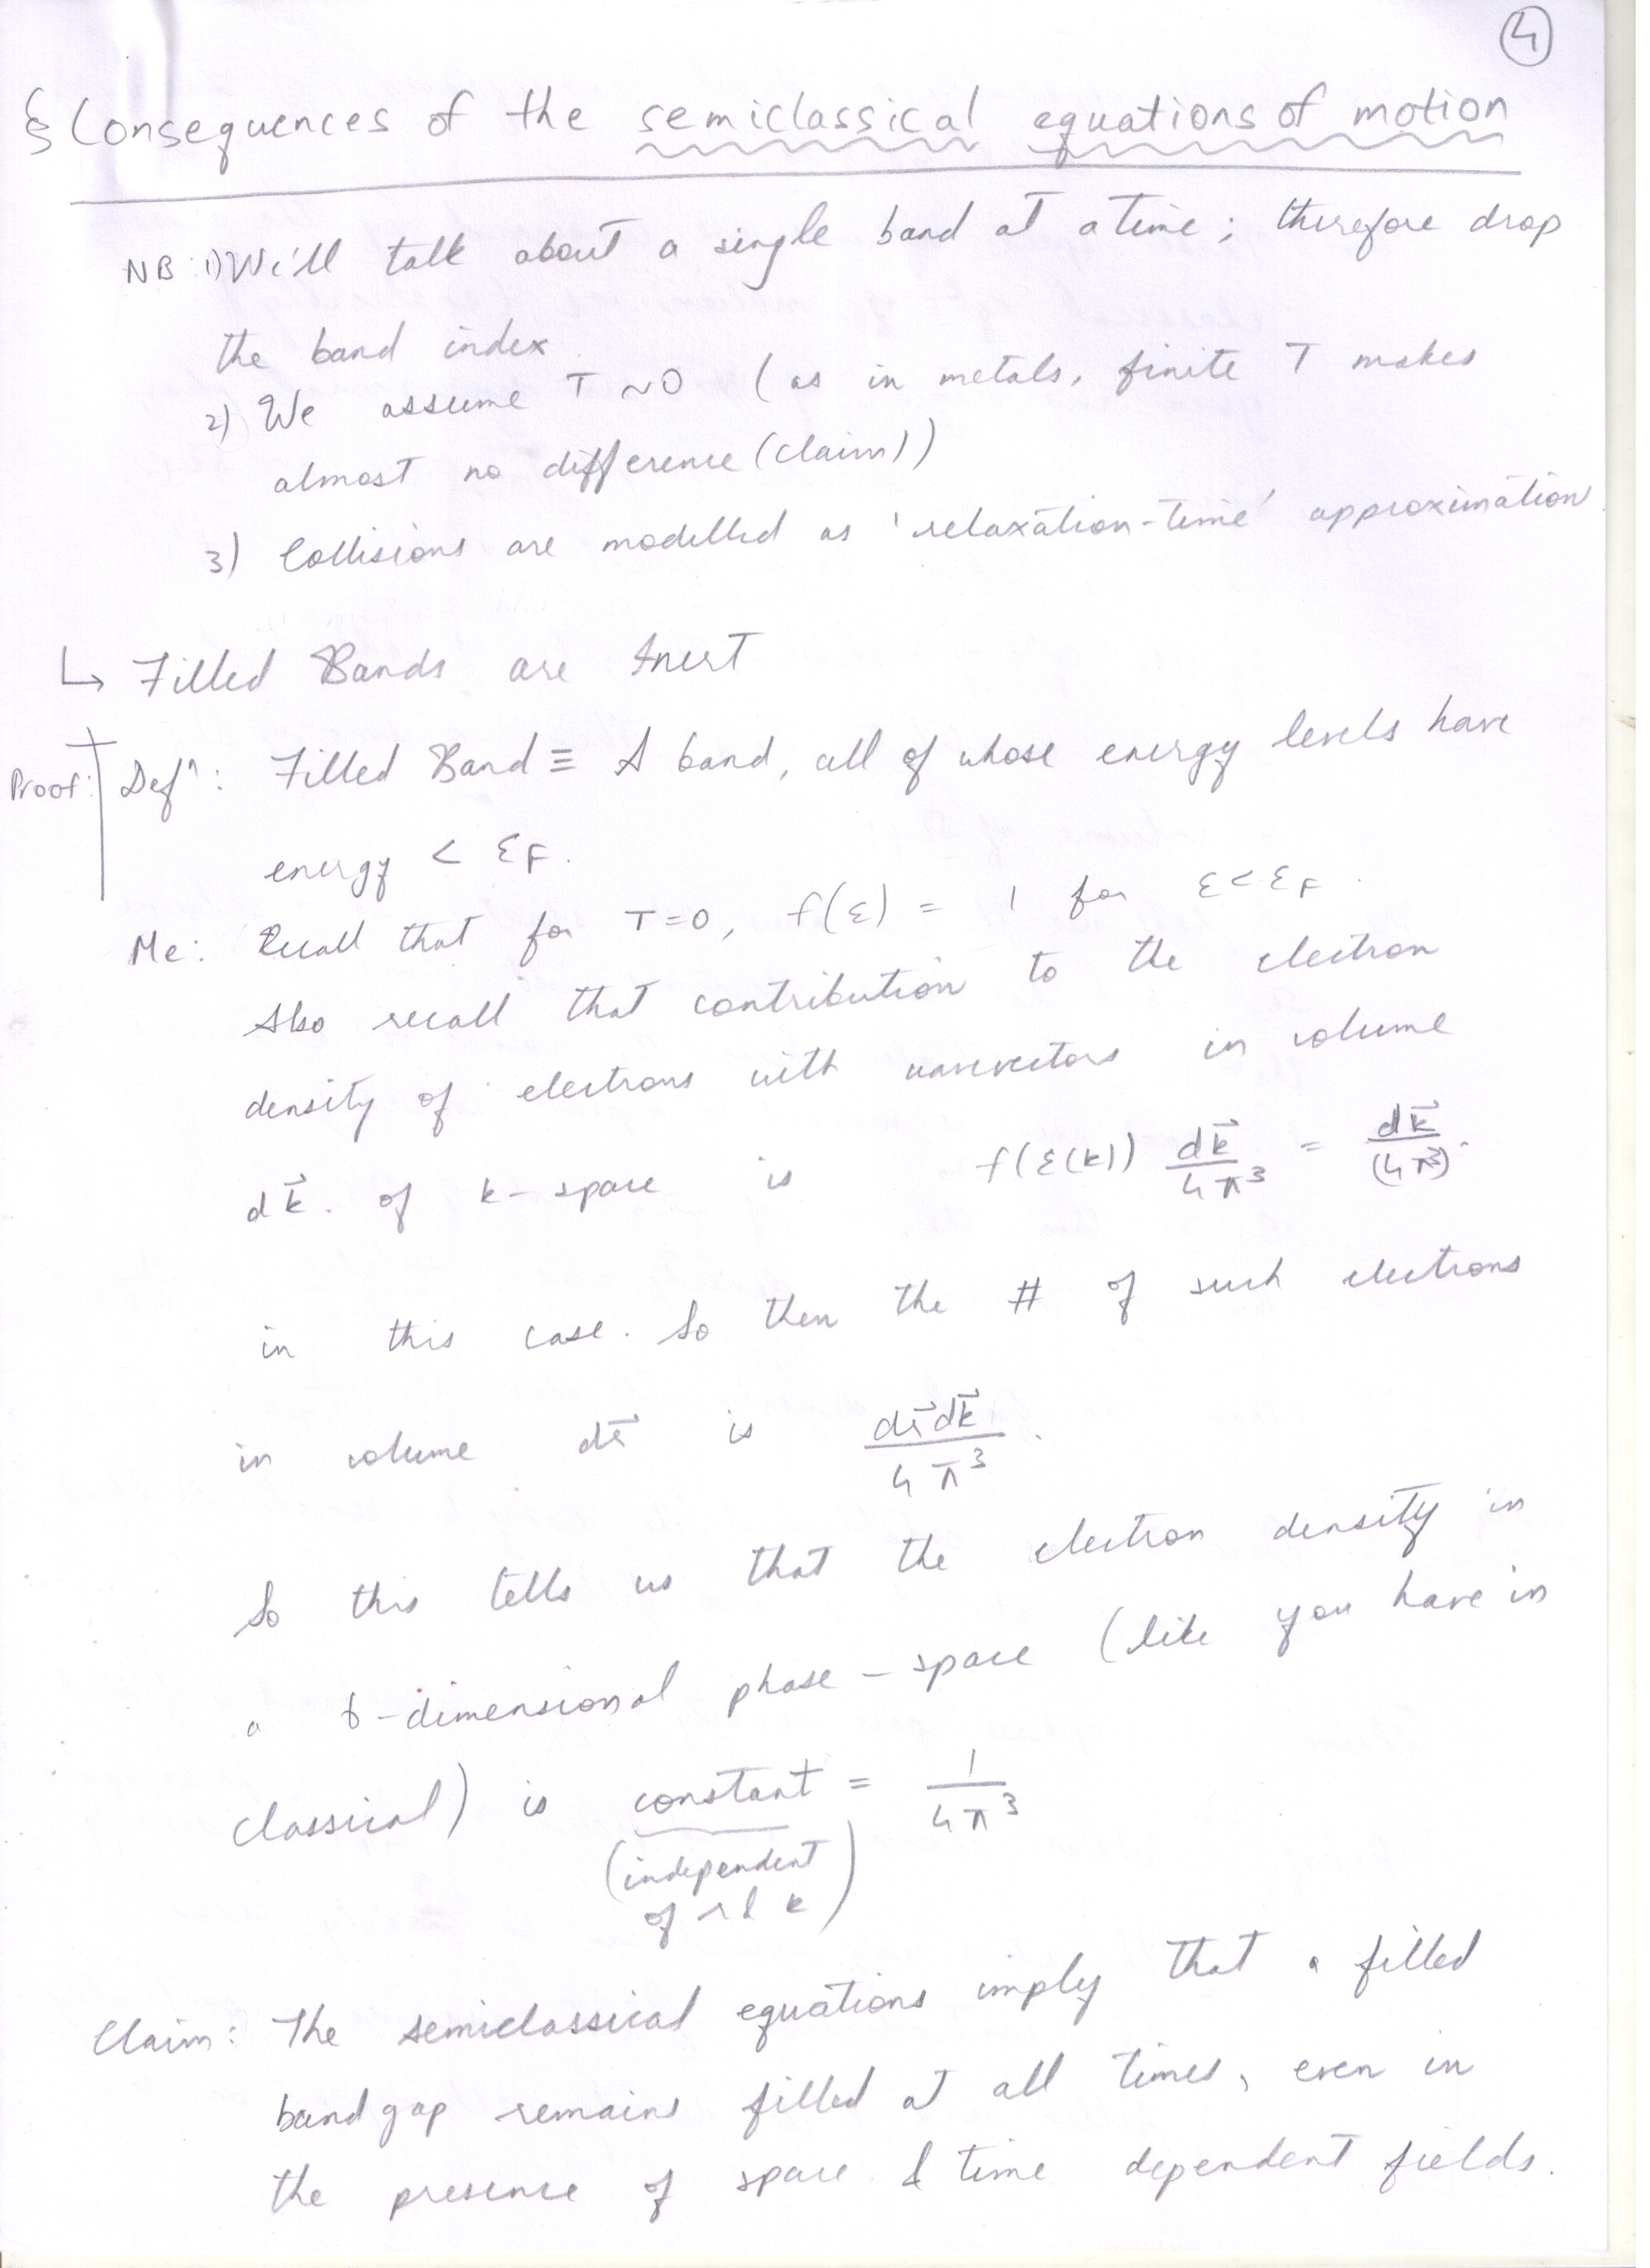 4
§ Consequences of the semiclassical equations of motion
NB: 1) We'll talk about a single band at a time; therefore drop
the band index
2) We assume T ~ 0 (as in metals, finite T makes
almost no difference (claim))
3) Collisions are modelled as 'relaxation-time' approximation.
↳ Filled Bands are Inert
Proof: Defⁿ: Filled Band ≡ A band, all of whose energy levels have
energy < ε_F.
Me: Recall that for T=0, f(ε) = 1 for ε < ε_F.
Also recall that contribution to the electron
density of electrons with wavevectors in volume
dk⃗. of k-space is f(ε(k)) dk⃗/4π³ = dk⃗/(4π³).
in this case. So then the # of such electrons
in volume dr⃗ is dr⃗dk⃗/4π³.
So this tells us that the electron density in
a 6-dimensional phase-space (like you have in
classical) is constant = 1/4π³
(independent
of r & k)
Claim: The semiclassical equations imply that a filled
band gap remains filled at all times, even in
the presence of space & time dependent fields.